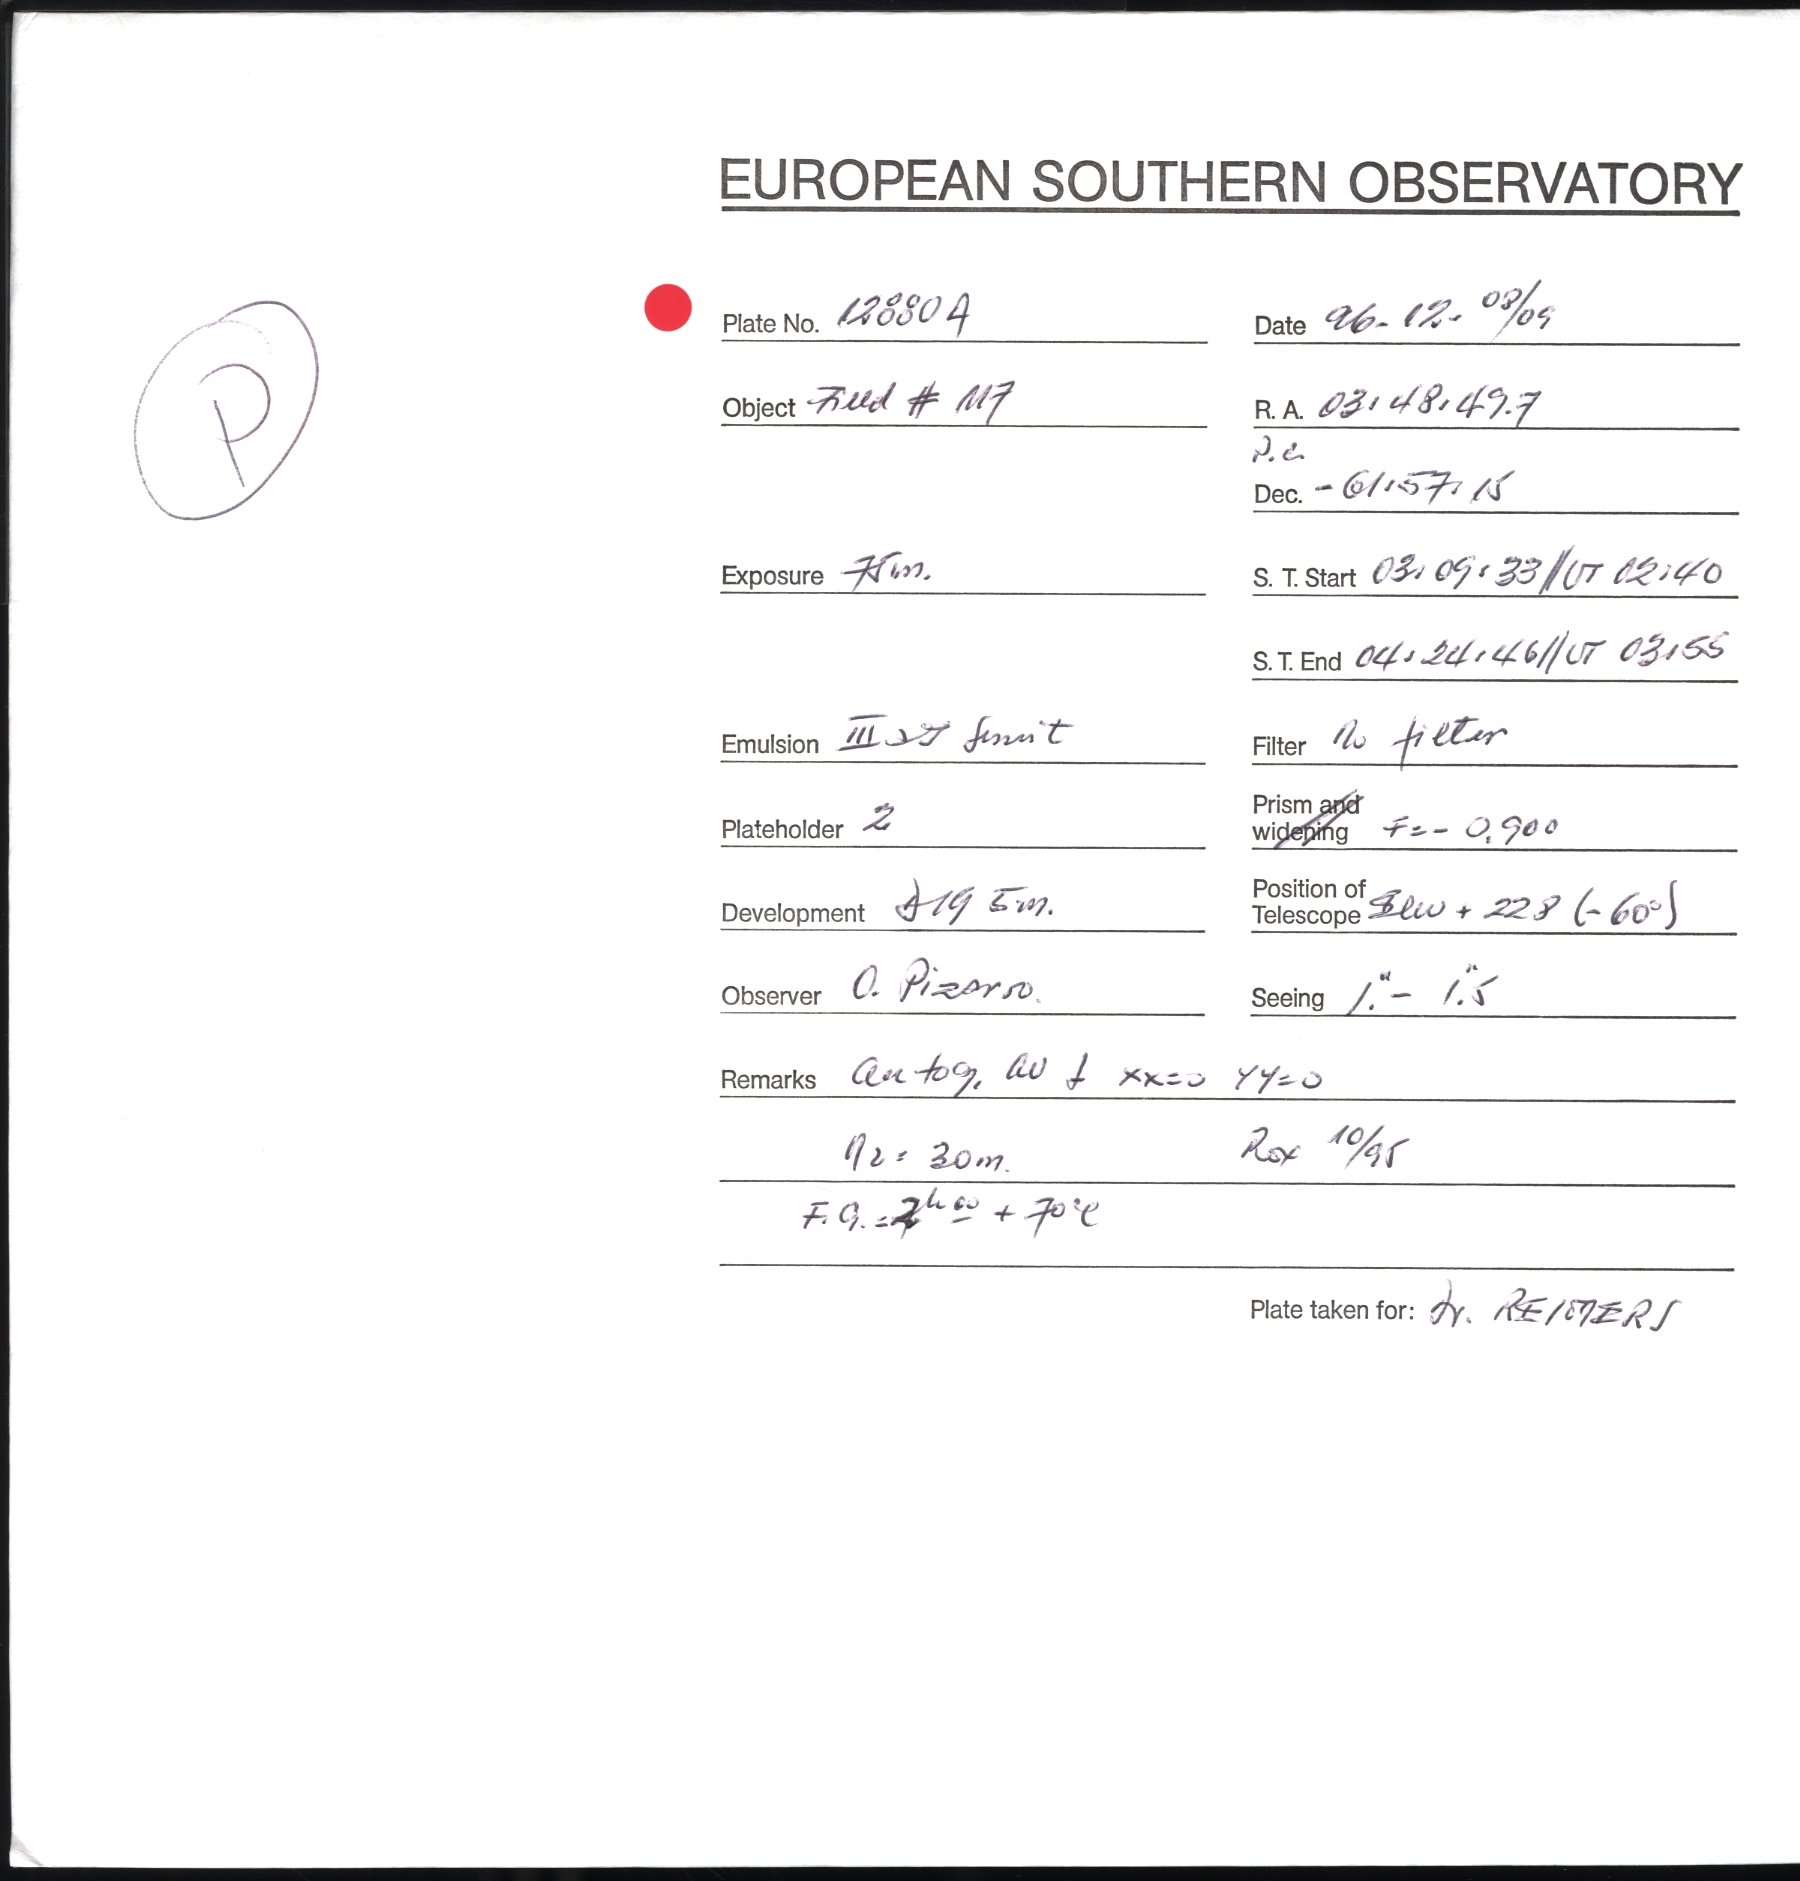 EUROPEAN SOUTHERN OBSERVATORY
P
Plate No. 12880A
Date 96-12-08/09
Object Field # 117
R. A. 03:48:49.7
Dec. -61:57:15
Exposure 75m.
S. T. Start 03:09:33//UT 02:40
S. T. End 04:24:46//UT 03:55
Emulsion IIIaJ
Filter No filter
Prism and widening F=-0.900
Plateholder 2
Development D19 5m.
Position of Telescope SEW + 228 (-60°)
Observer O. Pizarro.
Seeing 1."- 1."5
Remarks autog. XX=0 YY=0
N2= 30m. Rox 10/95
F.G.=2h00 + 70°C
Plate taken for: Dr. REIMERS